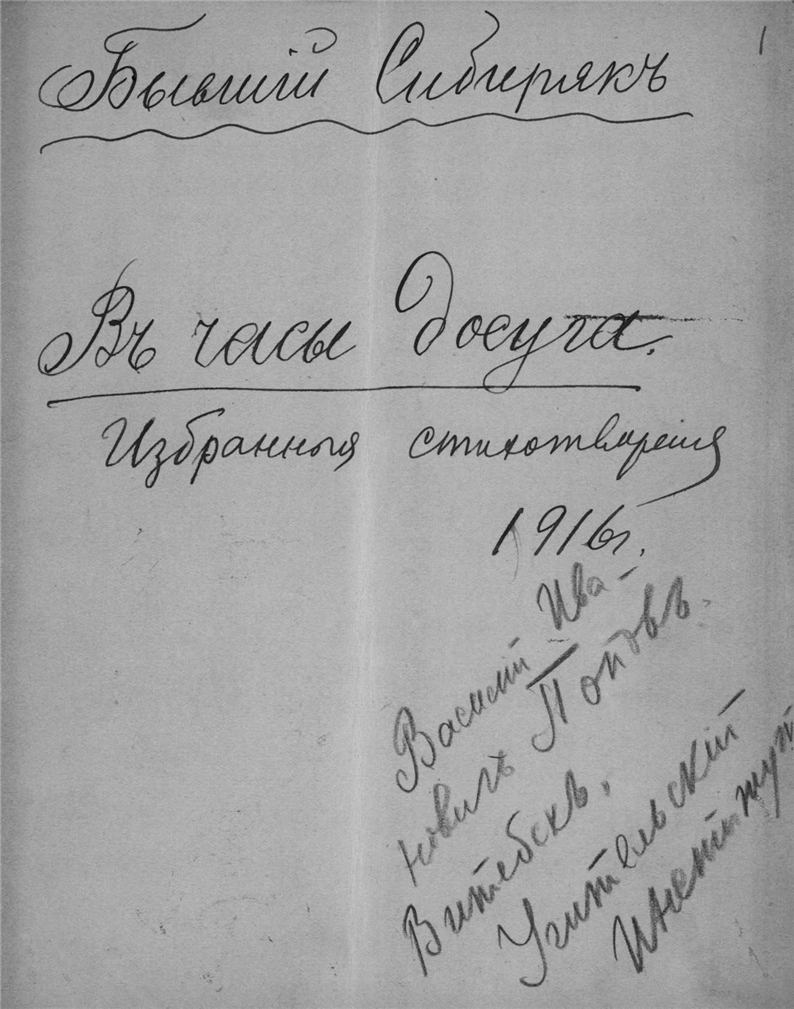 1
Бывшій Сибирякъ
Въ часы досуга.
Избранныя стихотворенія
1916 г.
Василій Ива-
новичъ Поповъ.
Витебскъ,
Учительскій
Институт